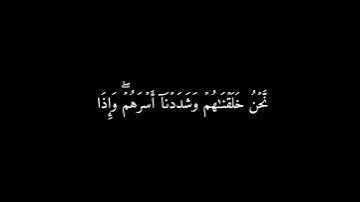 نَّحۡنُ خَلَقۡنَٰهُمۡ وَشَدَدۡنَآ أَسۡرَهُمۡۖ وَإِذَا